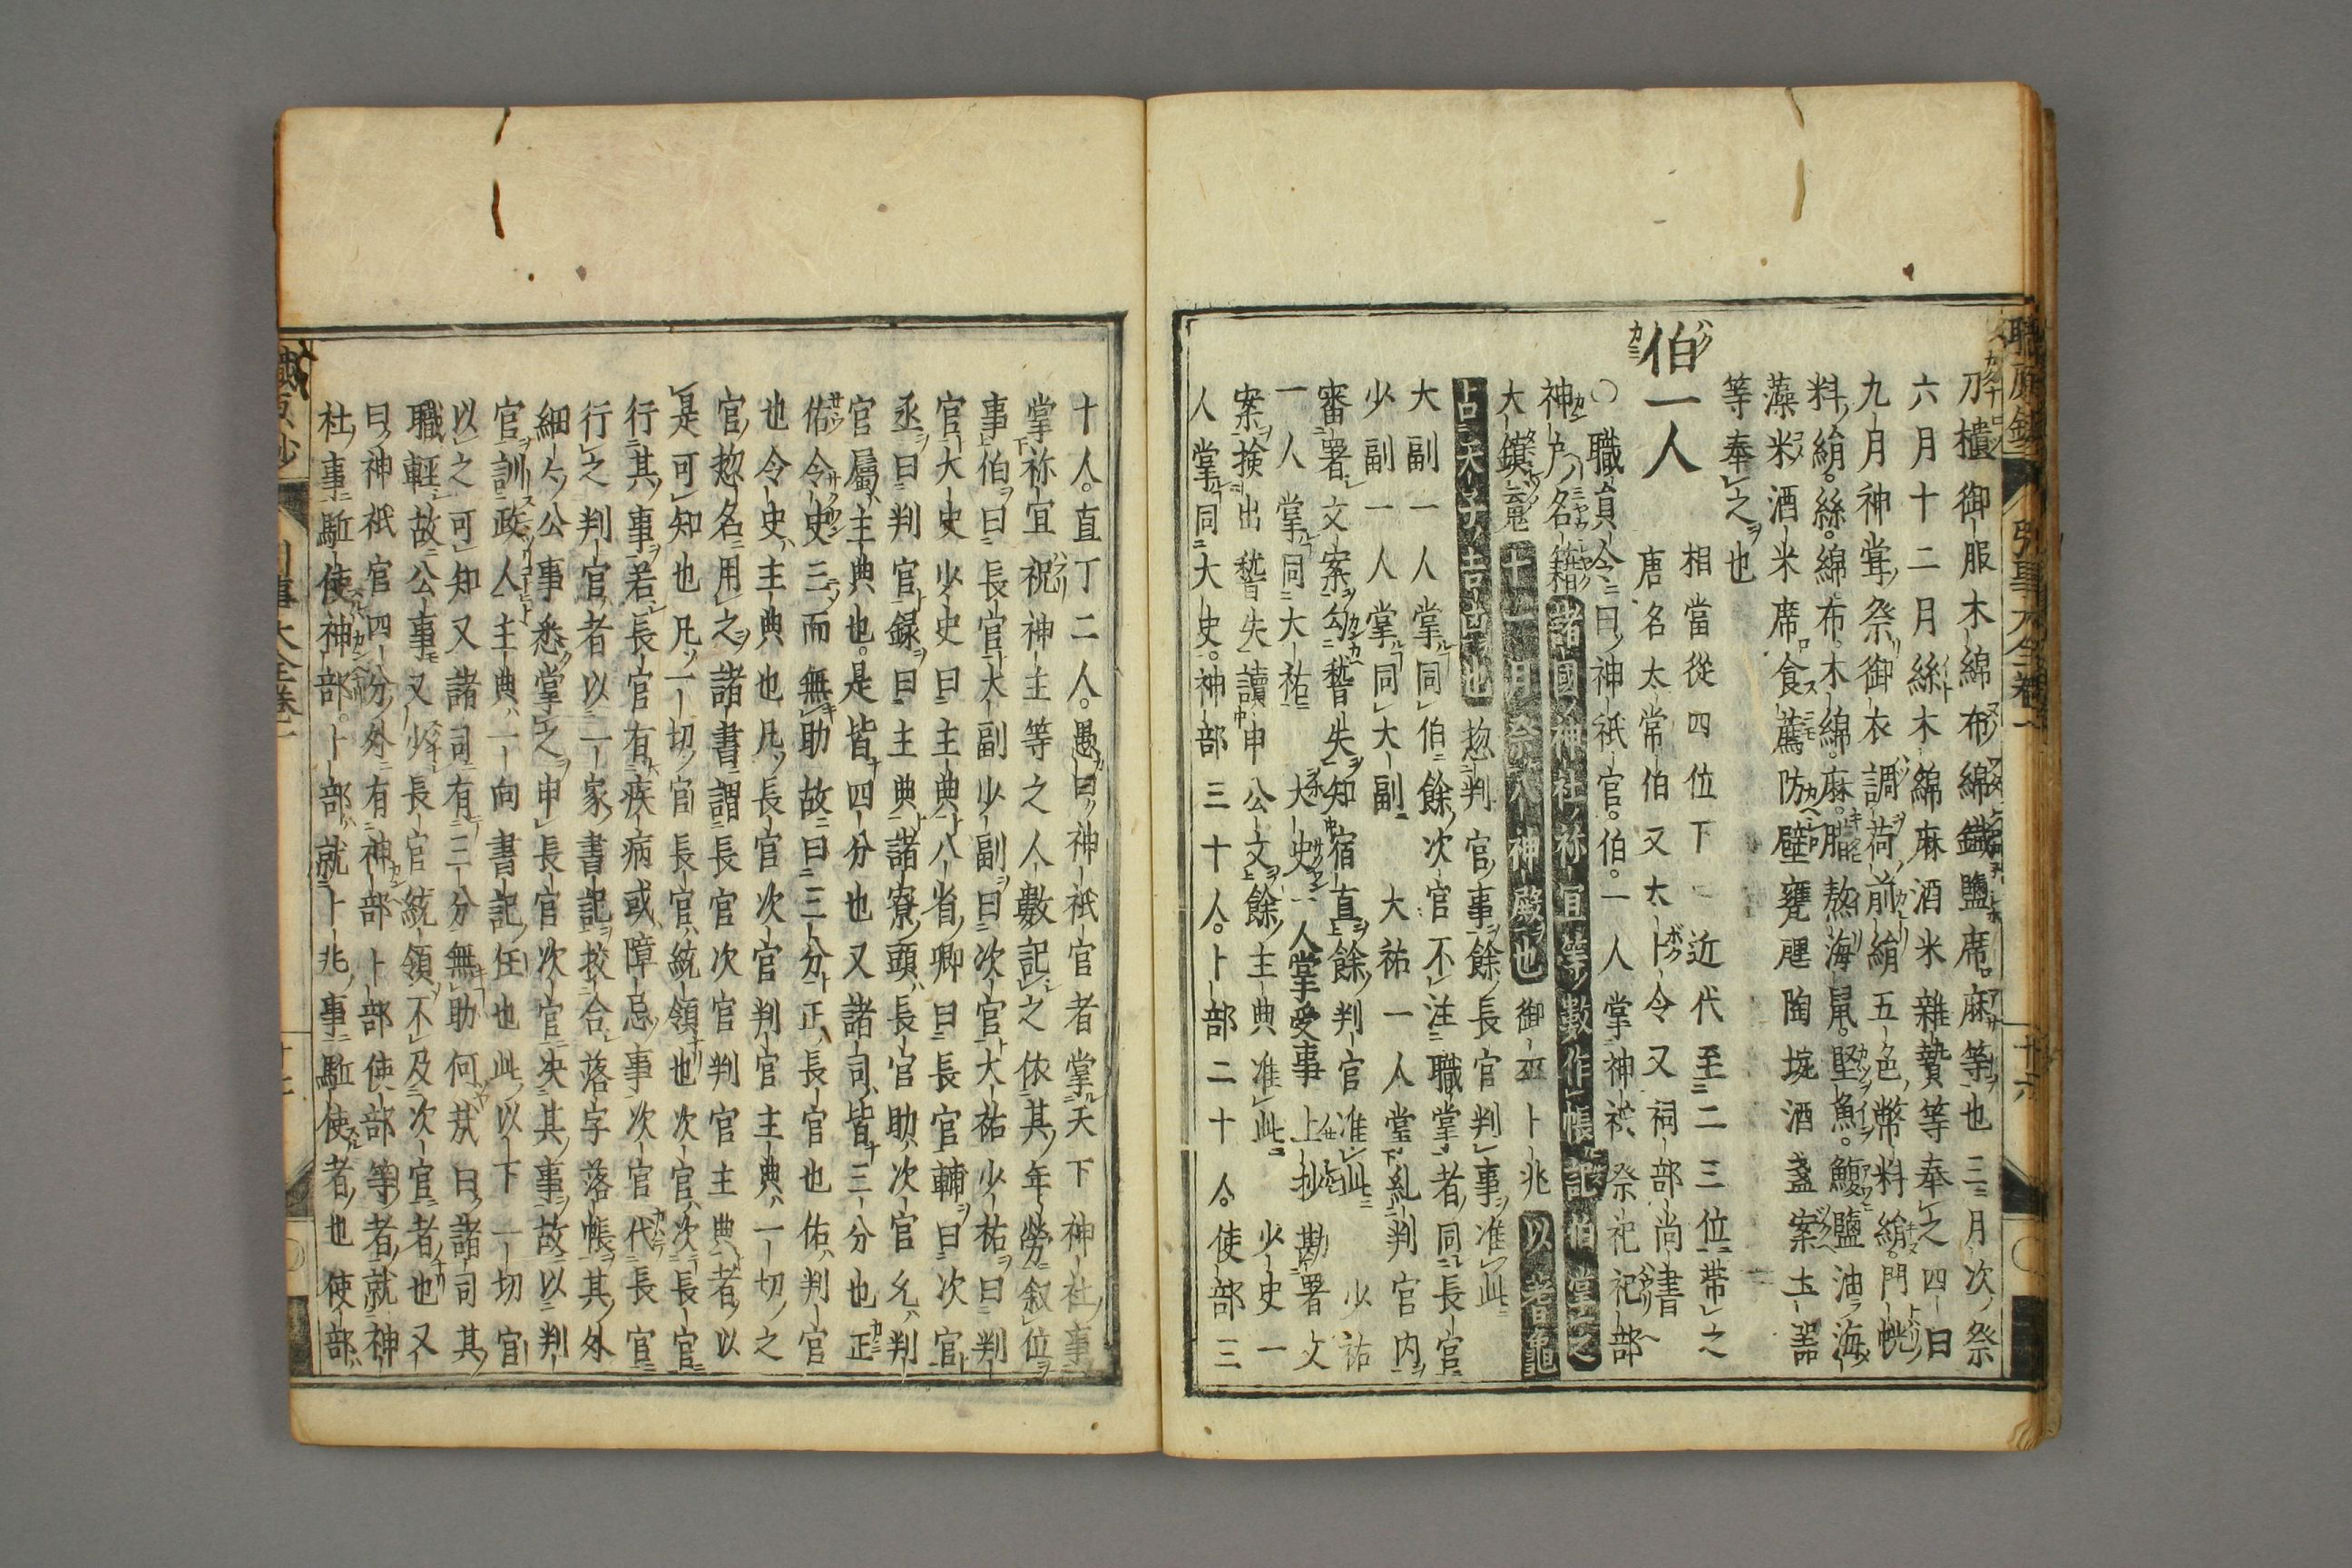 刀櫃御服木綿布綿鐵鹽席。麻等也三月次祭
六月十二月絲木綿麻酒米雜贄等奉之四日
九月神甞祭御衣調荷前絹五色幣料絹。門帨
料絹。絲。綿布。木綿。麻。腊熬海鼠。堅魚。鰒鹽油海
藻米酒米席食薦防壁甕𤭖陶埦酒盞案土噐
等奉之也
伯一人
相當從四位下 近代至二三位帯之
唐名太常伯又大卜令又祠部尚書
〇職貟令曰神祇官。伯。一人掌神祇祭祀祀部
神戸名籍諸國神社祢宜等數作帳記伯掌之
大鎮䰟十一月祭八神殿也御巫卜兆以者龜
占大子吉凶也惣判官事餘長官判事准此
大副一人掌同伯餘次官不注職掌者同長官
少副一人掌同大副 大祐一人掌糺判官内
審署文案勾稽失知宿直餘判官准此 少祐
一人掌同大祐 大史一人掌受事上抄勘署文
案撿出稽失讀申公文餘主典准此 少史一
人掌同大史。神部三十人。卜部二十人。使部三
十人。直丁二人。愚曰神祇官者掌天下神社事
掌祢宜祝神主等之人數記之依其年勞叙位
事伯曰長官大副少副曰次官大祐少祐曰判
官大史少史曰主典八省卿曰長官輔曰次官
丞曰判官録曰主典諸寮頭長官助次官允判
官屬主典也。是皆四分也又諸司皆三分也正
佑令史三而無助故曰三分正長官也佑判官
也令史主典也凡長官次官判官主典一切之
官惣名用之諸書謂長官次官判官主典者以
是可知也凡一切官長官統領也次官次長官
行其事若長官有疾病或障忌事次官代長官
行之判官者以一家書記挍合落字落帳其外
細々公事悉掌之申長官次官决其事故以判
官訓政人主典一向書記任也此以下一切官
以之可知又諸司有三分無助何哉曰諸司其
職輕故公事又少長官統領不及次官者也又
曰神祇官四分外有神部卜部使部等者就神
社事駈使神部。卜部就卜兆事駈使者也使部